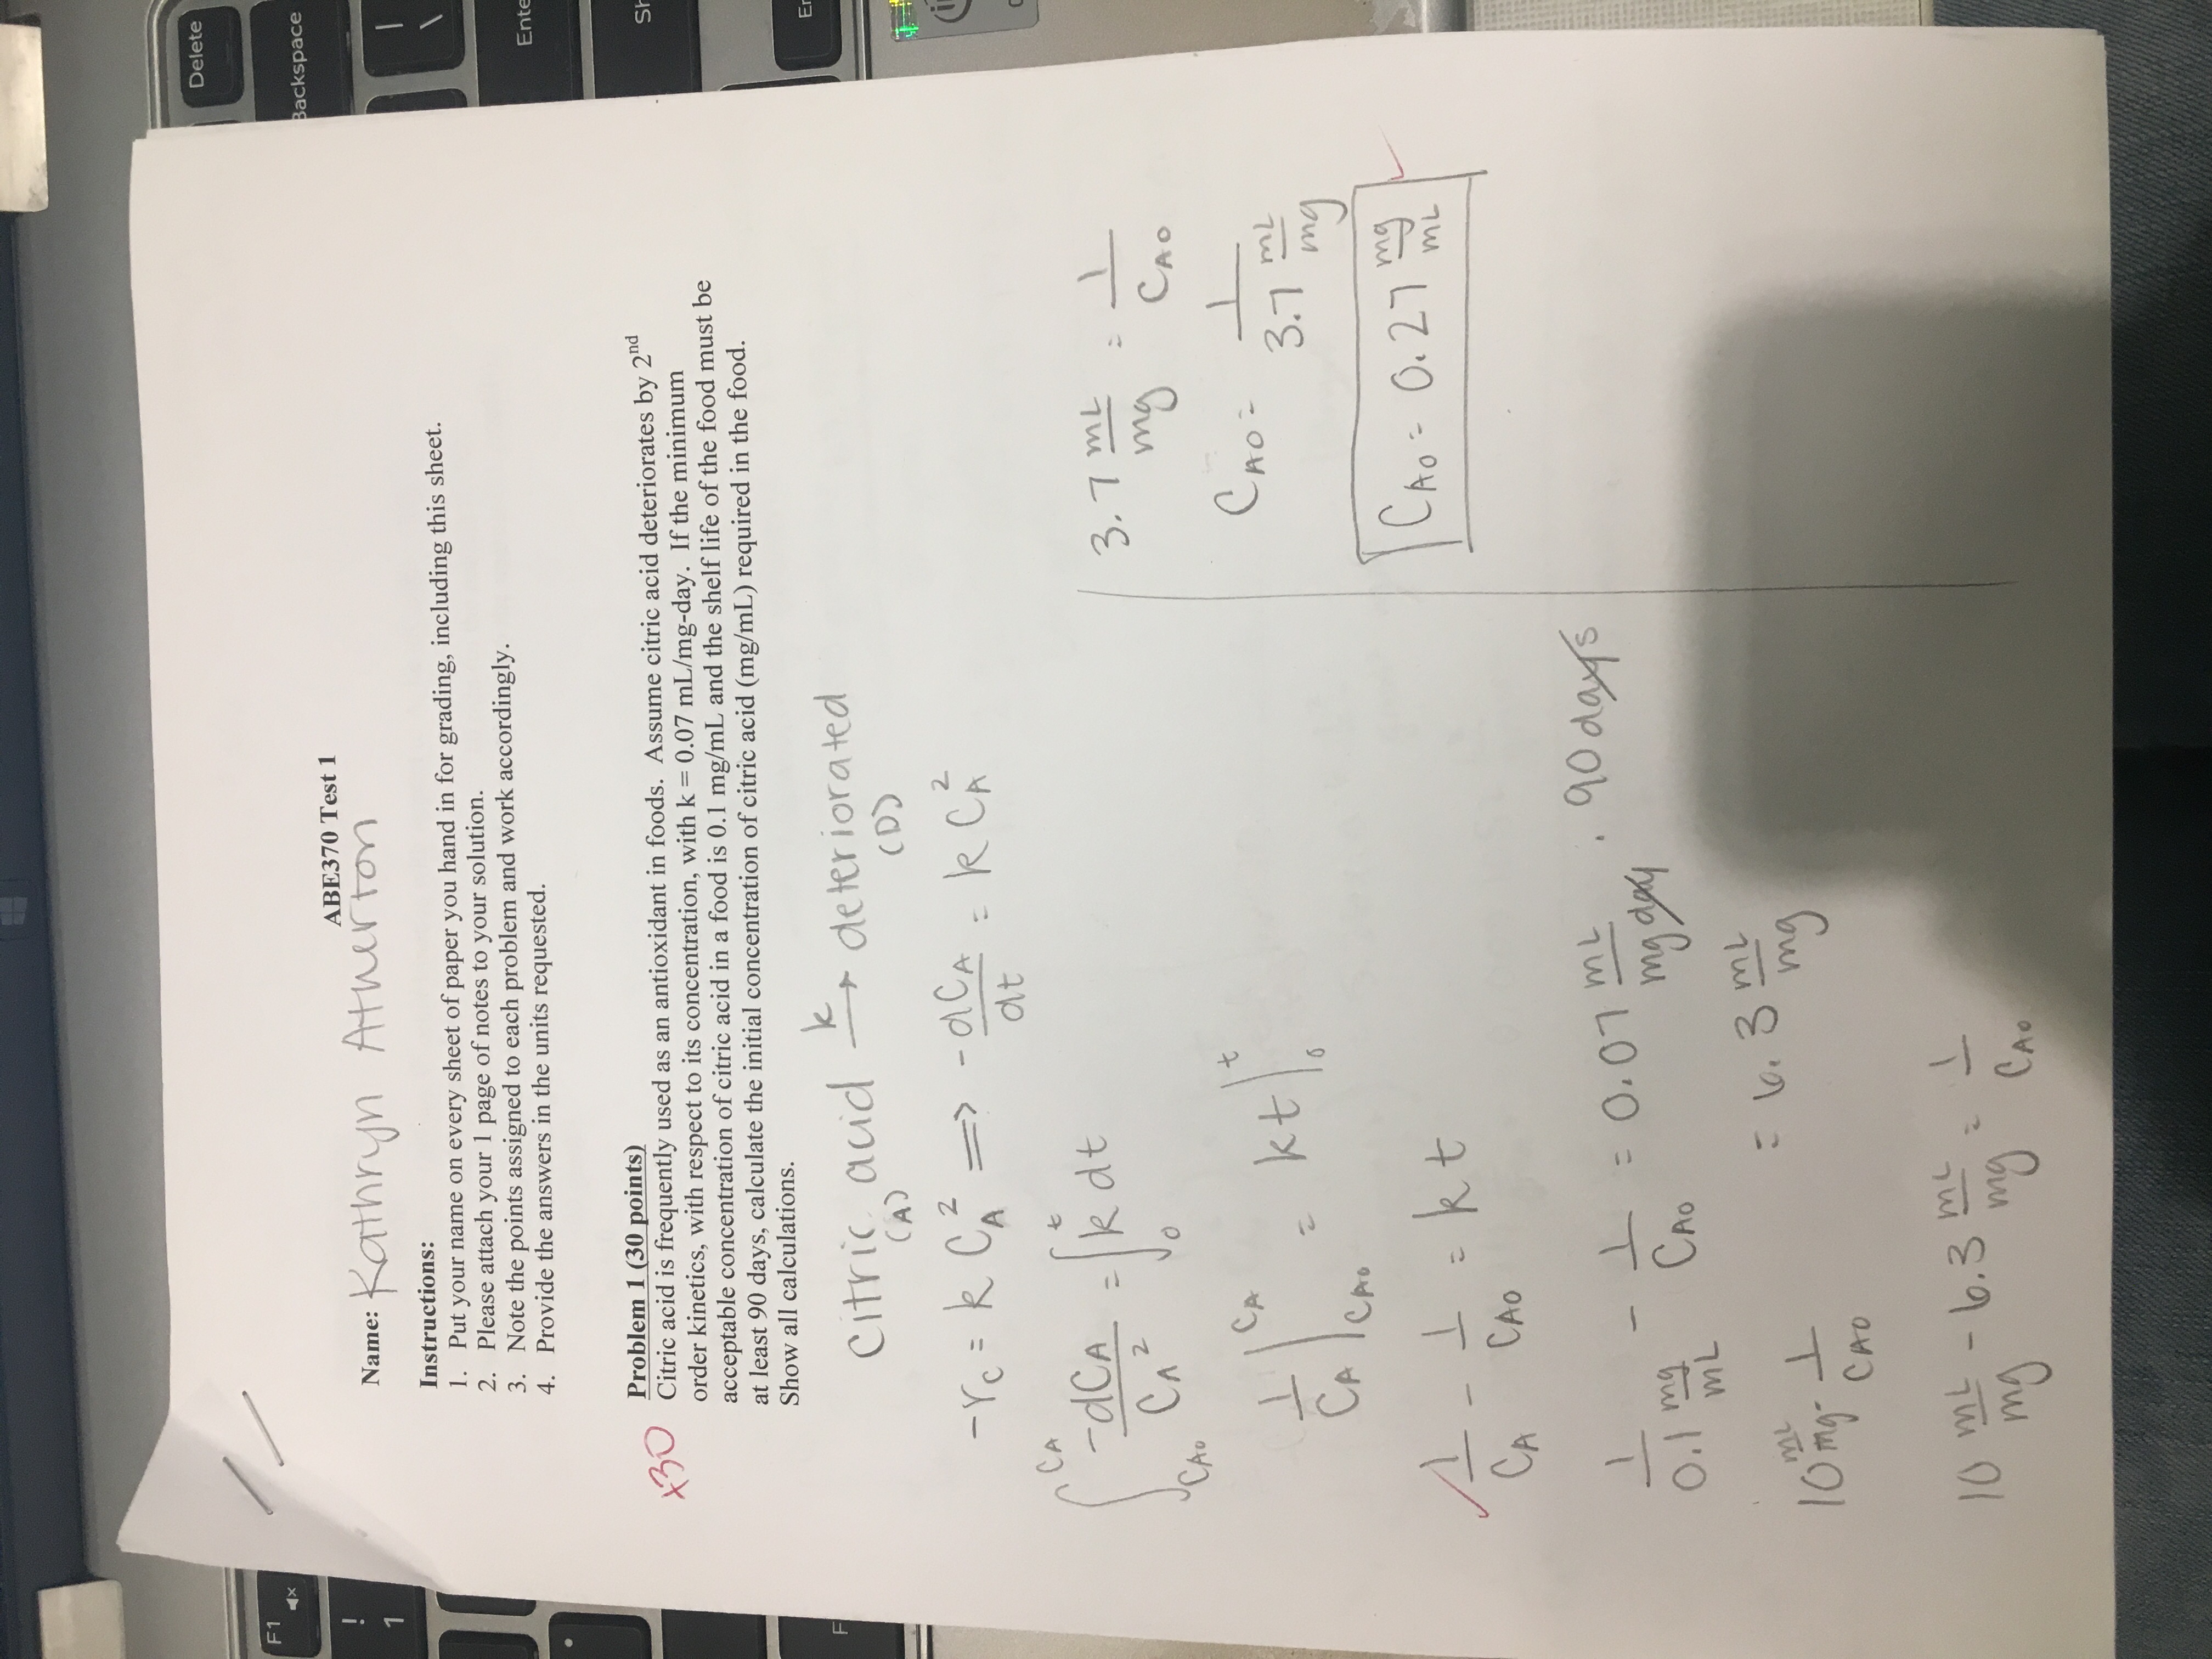 Delete
F1
Backspace
!
1
|
\
Ente
Sh
F
ABE370 Test 1
Name: Kathryn Atherton
Instructions:
1. Put your name on every sheet of paper you hand in for grading, including this sheet.
2. Please attach your 1 page of notes to your solution.
3. Note the points assigned to each problem and work accordingly.
4. Provide the answers in the units requested.
+30
Problem 1 (30 points)
Citric acid is frequently used as an antioxidant in foods. Assume citric acid deteriorates by 2nd
order kinetics, with respect to its concentration, with k = 0.07 mL/mg-day. If the minimum
acceptable concentration of citric acid in a food is 0.1 mg/mL and the shelf life of the food must be
at least 90 days, calculate the initial concentration of citric acid (mg/mL) required in the food.
Show all calculations.
citric acid k → deteriorated
(A) (D)
-rC = k CA² ⟹ -dCA/dt = k CA²
∫CA0^CA -dCA/CA² = ∫0^t k dt
1/CA |CA0^CA = kt |0^t
1/CA - 1/CA0 = kt
1/(0.1 mg/mL) - 1/CA0 = 0.07 mL/(mg day) · 90 days
10 mL/mg - 1/CA0 = 6.3 mL/mg
10 mL/mg - 6.3 mL/mg = 1/CA0
3.7 mL/mg = 1/CA0
CA0 = 1/(3.7 mL/mg)
CA0 = 0.27 mg/mL